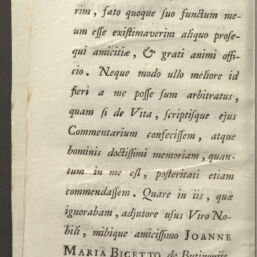 rim, fato quoque suo functum me-
um esse existimaverim aliquo prose-
qui amicitiæ, & grati animi offi-
cio. Neque modo ullo meliore id
fieri a me posse sum arbitratus,
quam si de Vita, scriptisque ejus
Commentarium confecissem, atque
hominis doctissimi memoriam, quan-
tum in me est, posteritati etiam
commendassem. Quare in iis, quæ
ignorabam, adjutore usus Viro No-
bili, mihique amicissimo JOANNE
MARIA BICETTO de